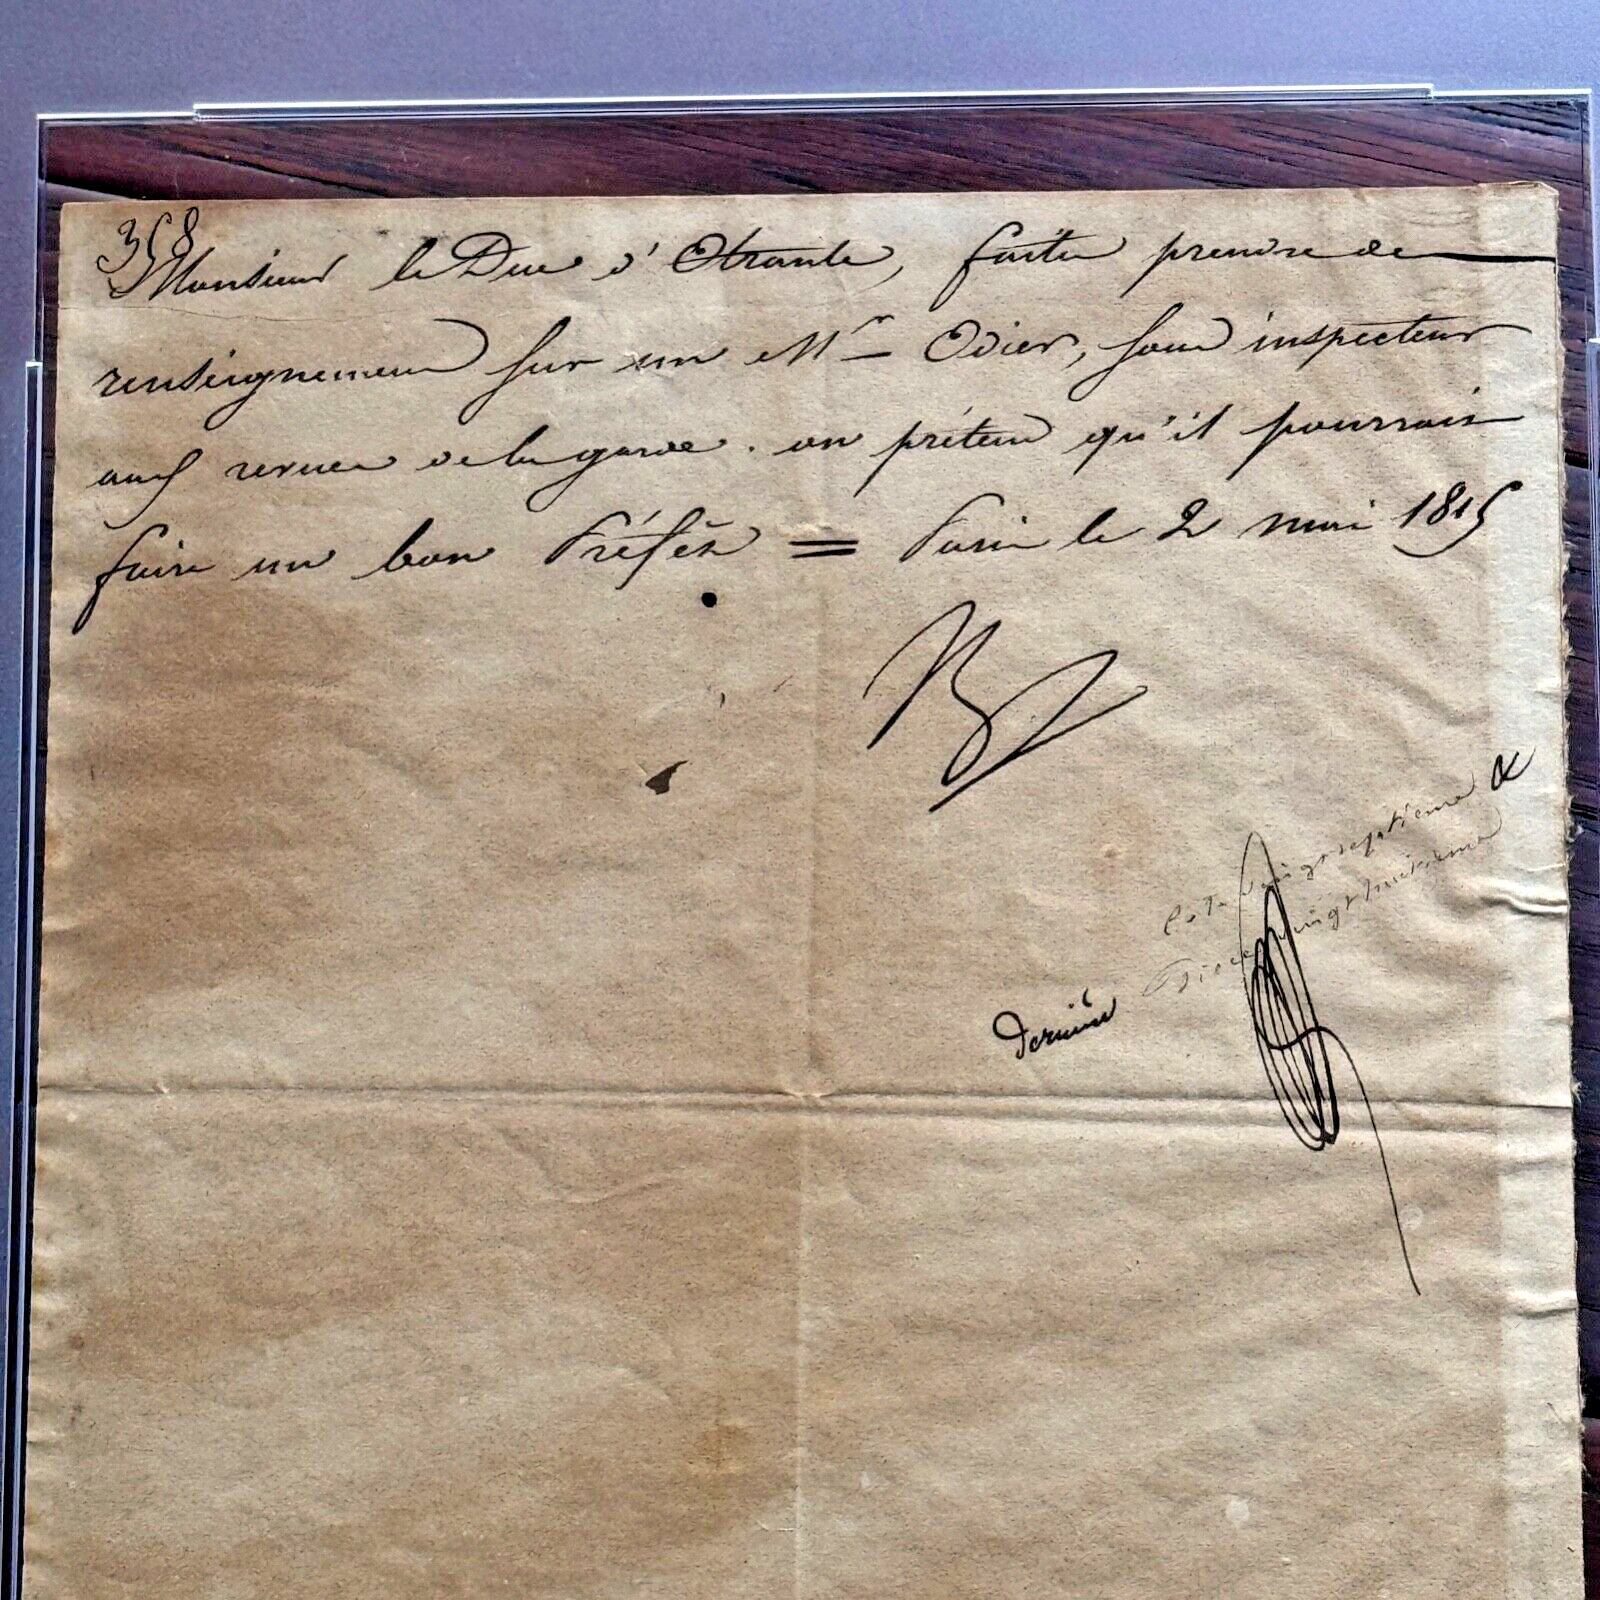 358
Monsieur le Duc d'Otrante, faites prendre de
renseignemens sur un Mr Odier, sous inspecteur
aux revues de la garde. on prétend qu'il pourrait
faire un bon Préfêt = Paris le 2 mai 1815
Cote vingt septieme &
Piece vingt huitieme
derniere